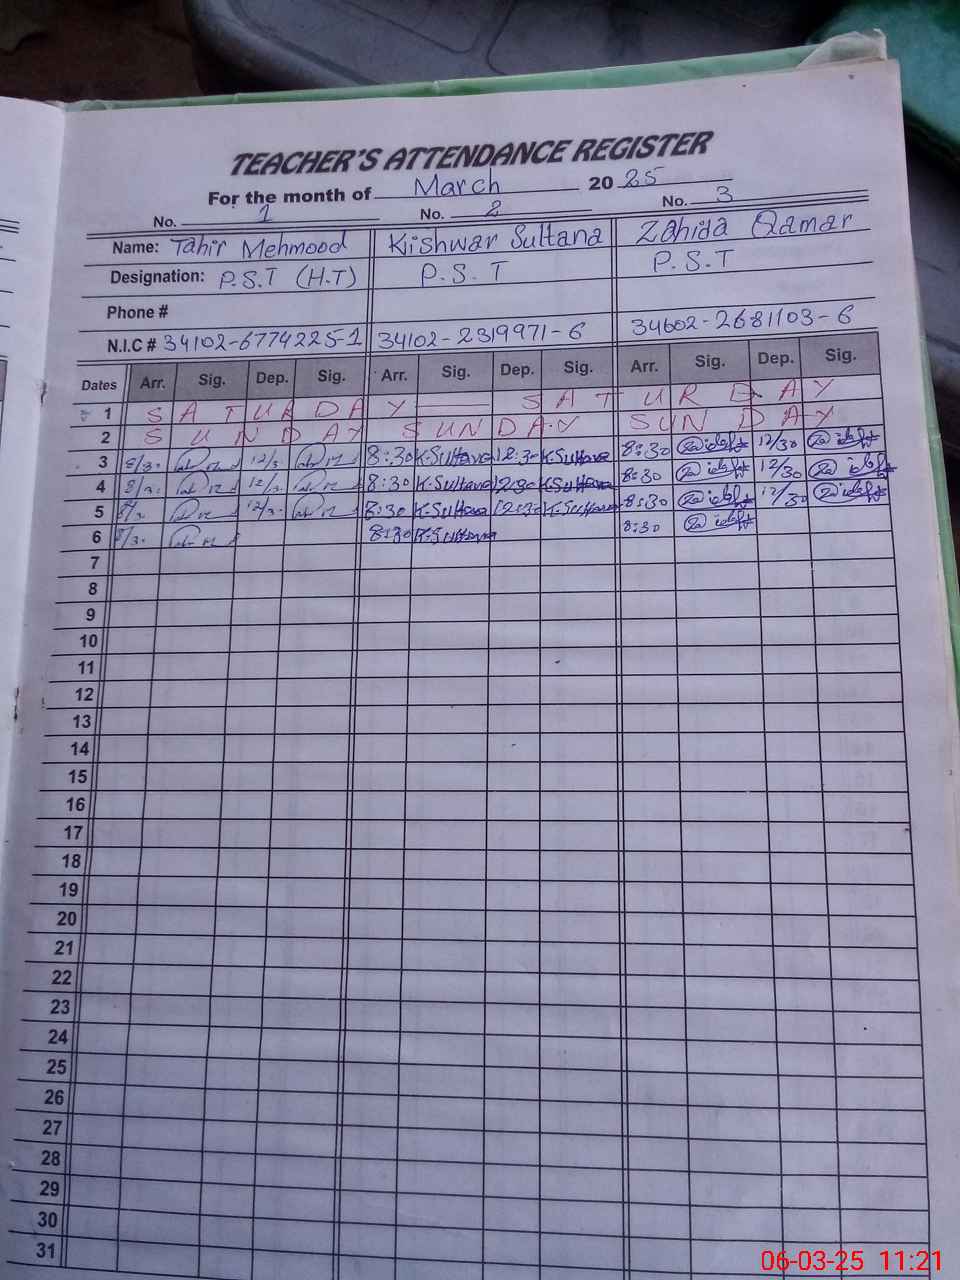 TEACHER'S ATTENDANCE REGISTER
For the month of March 2025
No. 1 No. 2 No. 3
Name: Tahir Mehmood Kishwar Sultana Zahida Qamar
Designation: P.S.T (H.T) P.S.T P.S.T
Phone #
N.I.C # 34102-6774225-1 34102-2319971-6 34602-2681103-6
Dates Arr. Sig. Dep. Sig. Arr. Sig. Dep. Sig. Arr. Sig. Dep. Sig.
1 SATURDAY SATURDAY
2 SUNDAY SUNDAY SUNDAY
3 8/30 12/3. 8:30 K.Sultana 12:30 K.Sultana 8:30 12/30
4 8/3. 12/3. 8:30 K.Sultana 12:30 K.Sultana 8:30 12/30
5 8/3. 12/3. 8:30 K.Sultana 12:30 K.Sultana 8:30 12/30
6 8/3. 8:30 K.Sultana 8:30
7
8
9
10
11
12
13
14
15
16
17
18
19
20
21
22
23
24
25
26
27
28
29
30
31
06-03-25 11:21